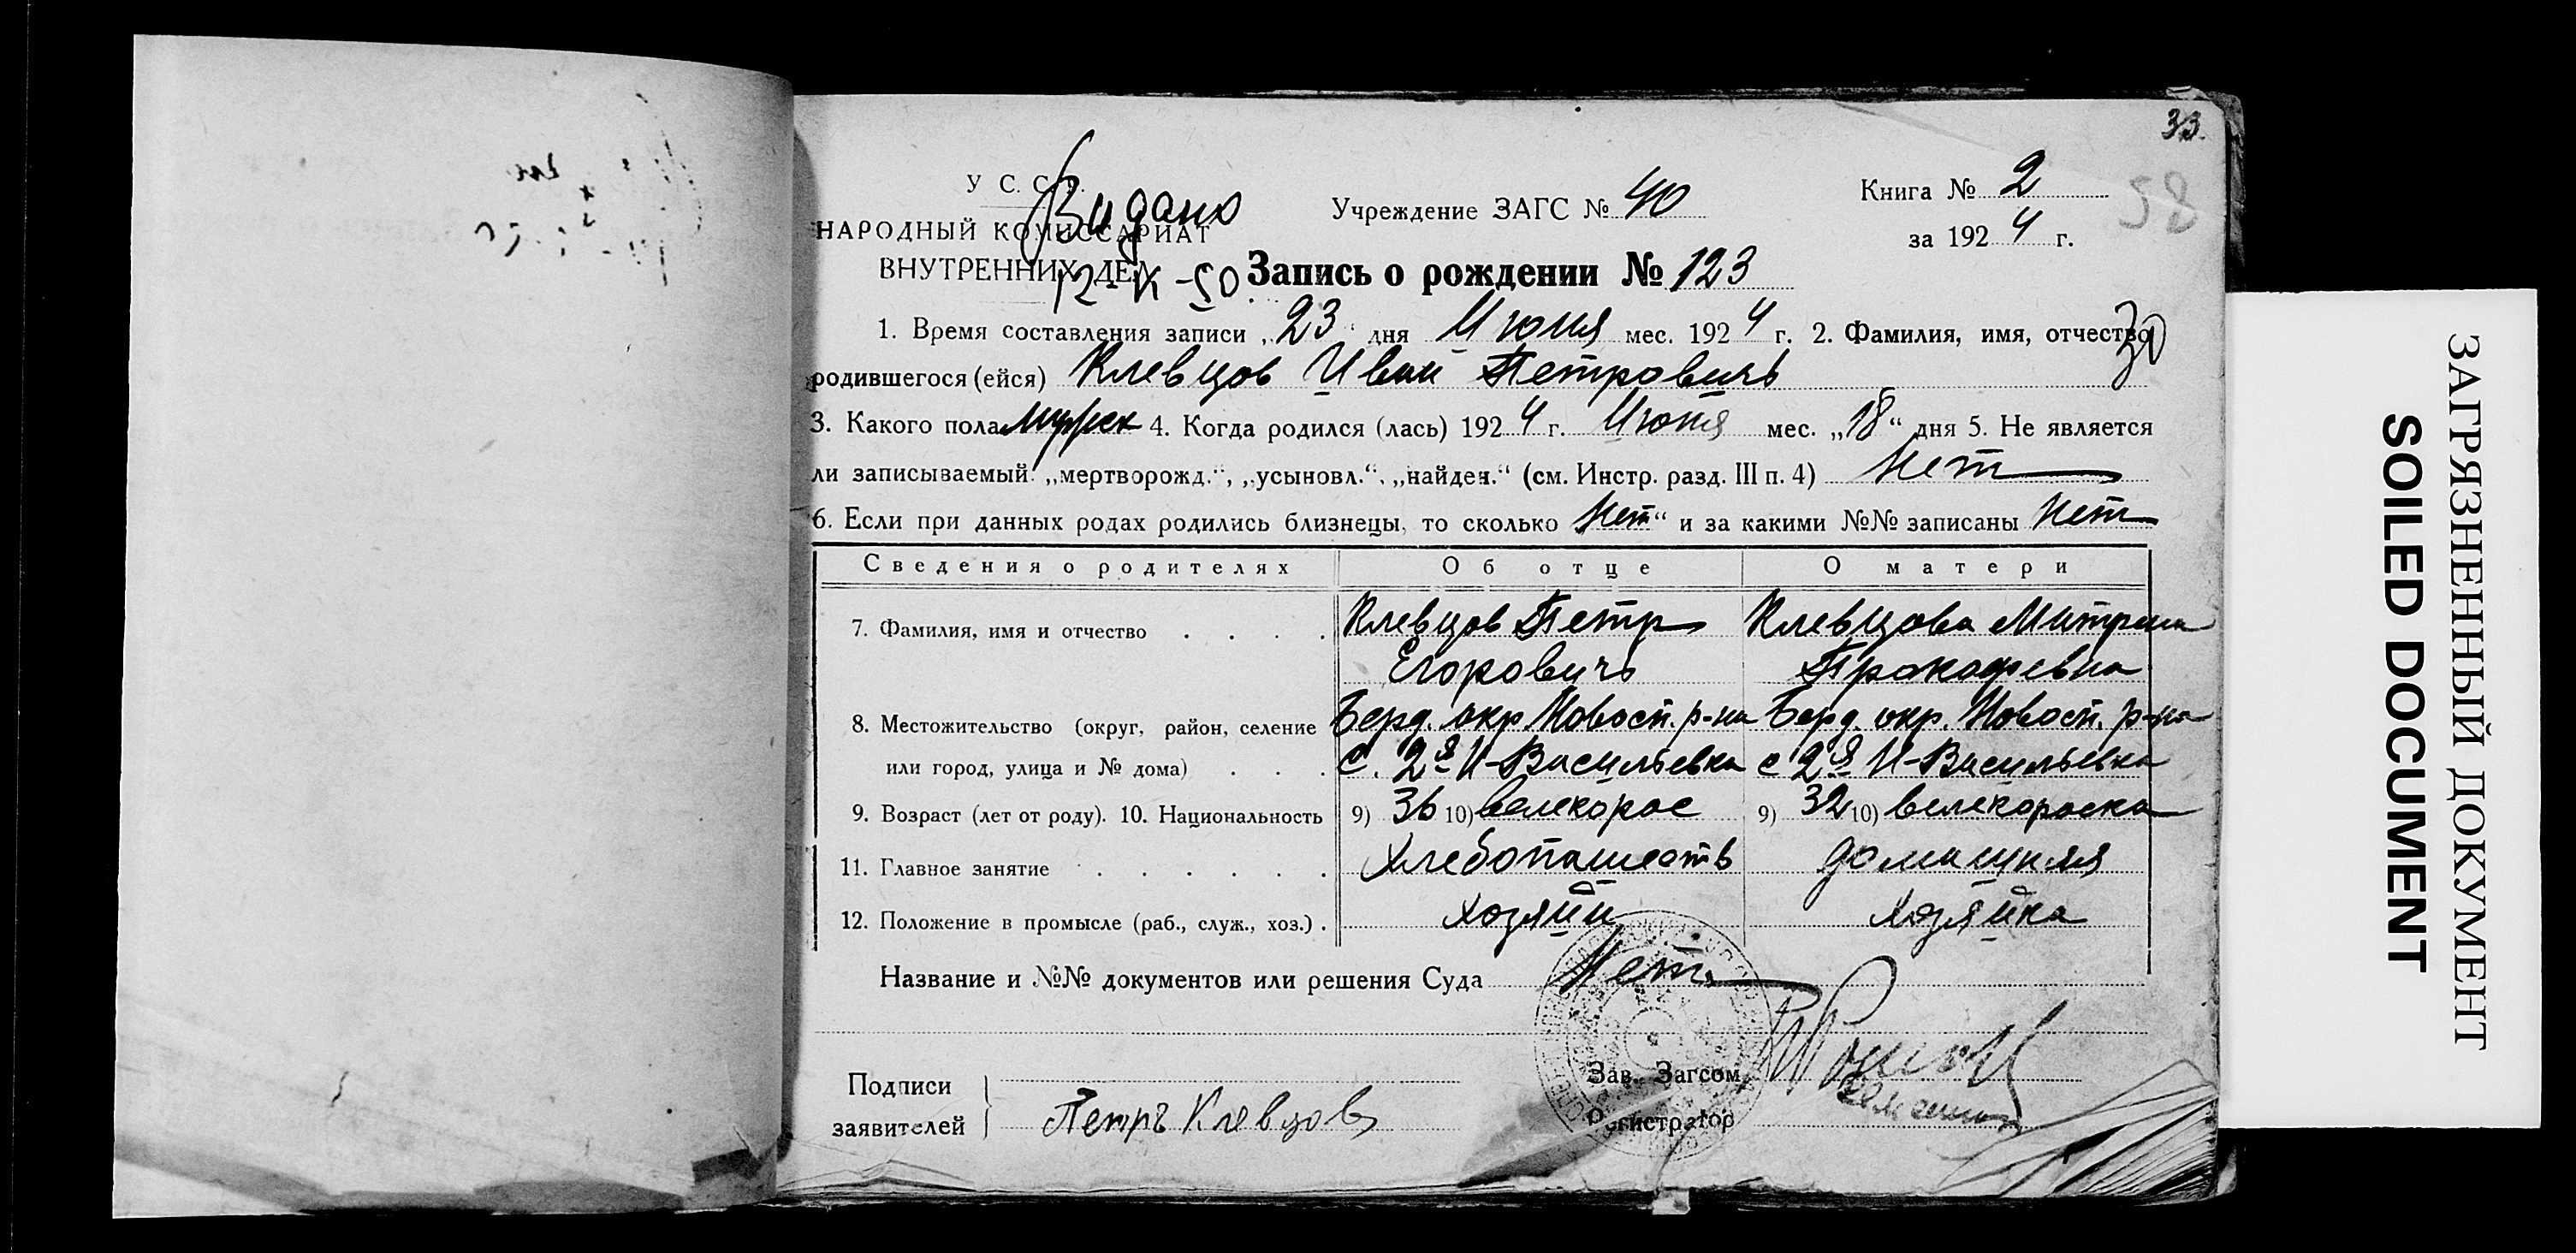 33.
58
У С. С. Р.
Видано
НАРОДНЫЙ КОМИССАРИАТ
ВНУТРЕННИХ ДЕЛ
12-IX-50
Учреждение ЗАГС № 40
Книга № 2
за 1924 г.
Запись о рождении № 123
1. Время составления записи „23“ дня Июня мес. 1924 г. 2. Фамилия, имя, отчество
родившегося (ейся) Клевцов Иван Петровичъ
3. Какого пола мужск 4. Когда родился (лась) 1924 г. Июня мес. „18“ дня 5. Не является
ли записываемый „мертворожд.“, „усыновл.“, „найден.“ (см. Инстр. разд. III п. 4) Нет
6. Если при данных родах родились близнецы, то сколько Нет“ и за какими №№ записаны Нет
Сведения о родителях Об отце О матери
7. Фамилия, имя и отчество . . . . Клевцов Петр Клевцова Митрена
Егоровичъ Прокофевна
8. Местожительство (округ, район, селение Берд. окр Новосп. р-на Берд. окр. Новосп. р-на
или город, улица и № дома) . . . с. 2я Н-Васильевка с 2я Н-Васильевка
9. Возраст (лет от роду). 10. Национальность 9) 36 10) велекорос 9) 32 10) велекороска
11. Главное занятие . . . . . . Хлебопашеств домашняя
12. Положение в промысле (раб., служ., хоз.) . Хозяин Хозяйка
Название и №№ документов или решения Суда Нет
Подписи
заявителей Петръ Клевцов
Зав. Загсом
Регистратор
ЗАГРЯЗНЕННЫЙ ДОКУМЕНТ
SOILED DOCUMENT